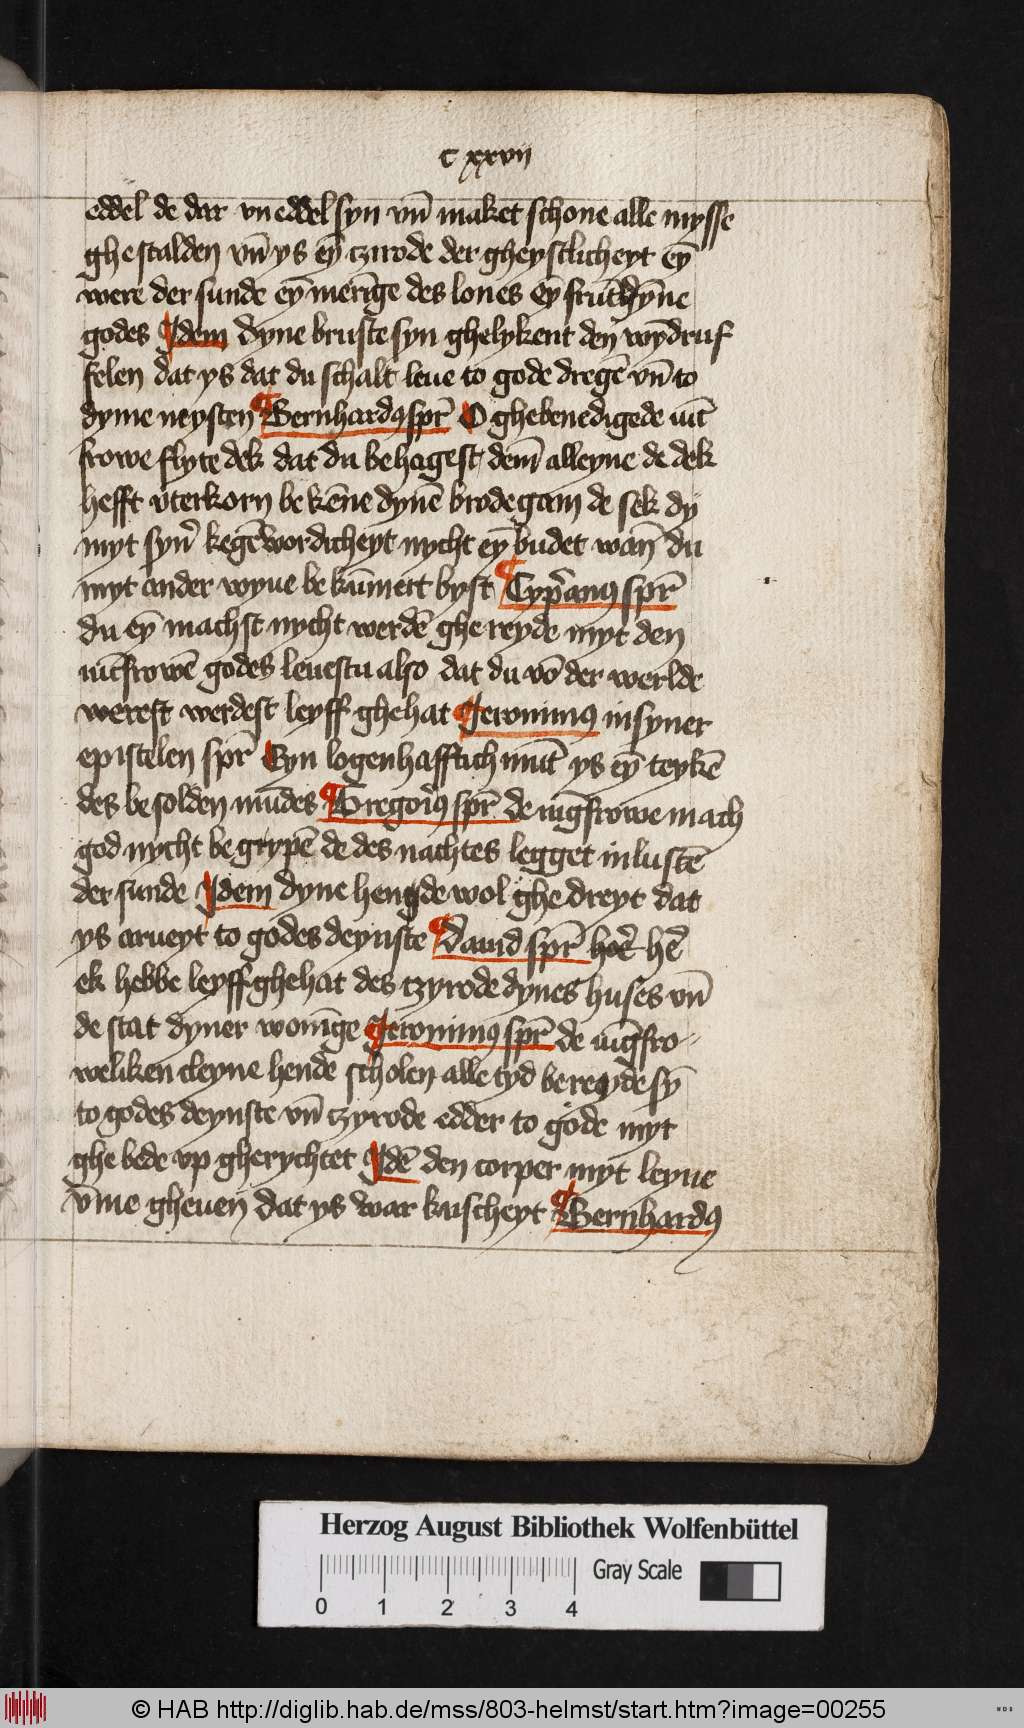 c xxvii
eddel de dar vn eddel syn vn̄ maket schone alle mysse
ghestalden vn̄ ys eȳ czirode der gheystlicheyt eȳ
were der sunde eȳ meri̅ge des lones eȳ frūt dȳne
godes Idem dyne bruste syn ghelykent den wȳdruf
felen dat ys dat du schalt leue to gode dregē vn̄ to
dyme neysten Bernhardꝰ spr̄ O ghebenedigede iūc
frowe flyte dek dat du behagest dem̄ alleyne de dek
hefft vterkorn bekēne dynē brodegam de sek dy
myt syner̄ kegēwordicheyt nycht eȳ budet wan̄ du
myt ander wyue bekūmert byst Cypr̄anꝰ spr̄
du eȳ machst nycht werdē ghereyde myt den
iūcfrowē godes leuestu also dat du vō der werlde
werest werdest leyff ghehat Jeronimꝰ in syner
epistelen spr̄ Eyn logenhafftich mūt ys eȳ teykē
des besolden mūdes Gregoriꝰ spr̄ de iūgfrowe mach
god nycht begrypē de des nachtes legget in lustē
der sunde Idem dyne hengde wol ghedreyt dat
ys arueyt to godes deynste Dauid spr̄ her̄ her̄
ek hebbe leyff ghehat des tzyrode dynes huses vn̄
de stat dyner woni̅ge Jeronimꝰ spr̄ de iūgfro-
weliken cleyne hende scholen alle tyd bereyde sȳ
to godes deynste vn̄ tzyrode edder to gode myt
ghebede vp gherychtet Idē den corper myt leyue
v̄me gheuen dat ys war kuscheyt Bernhardꝰ
Herzog August Bibliothek Wolfenbüttel
Gray Scale
0 1 2 3 4
© HAB http://diglib.hab.de/mss/803-helmst/start.htm?image=00255